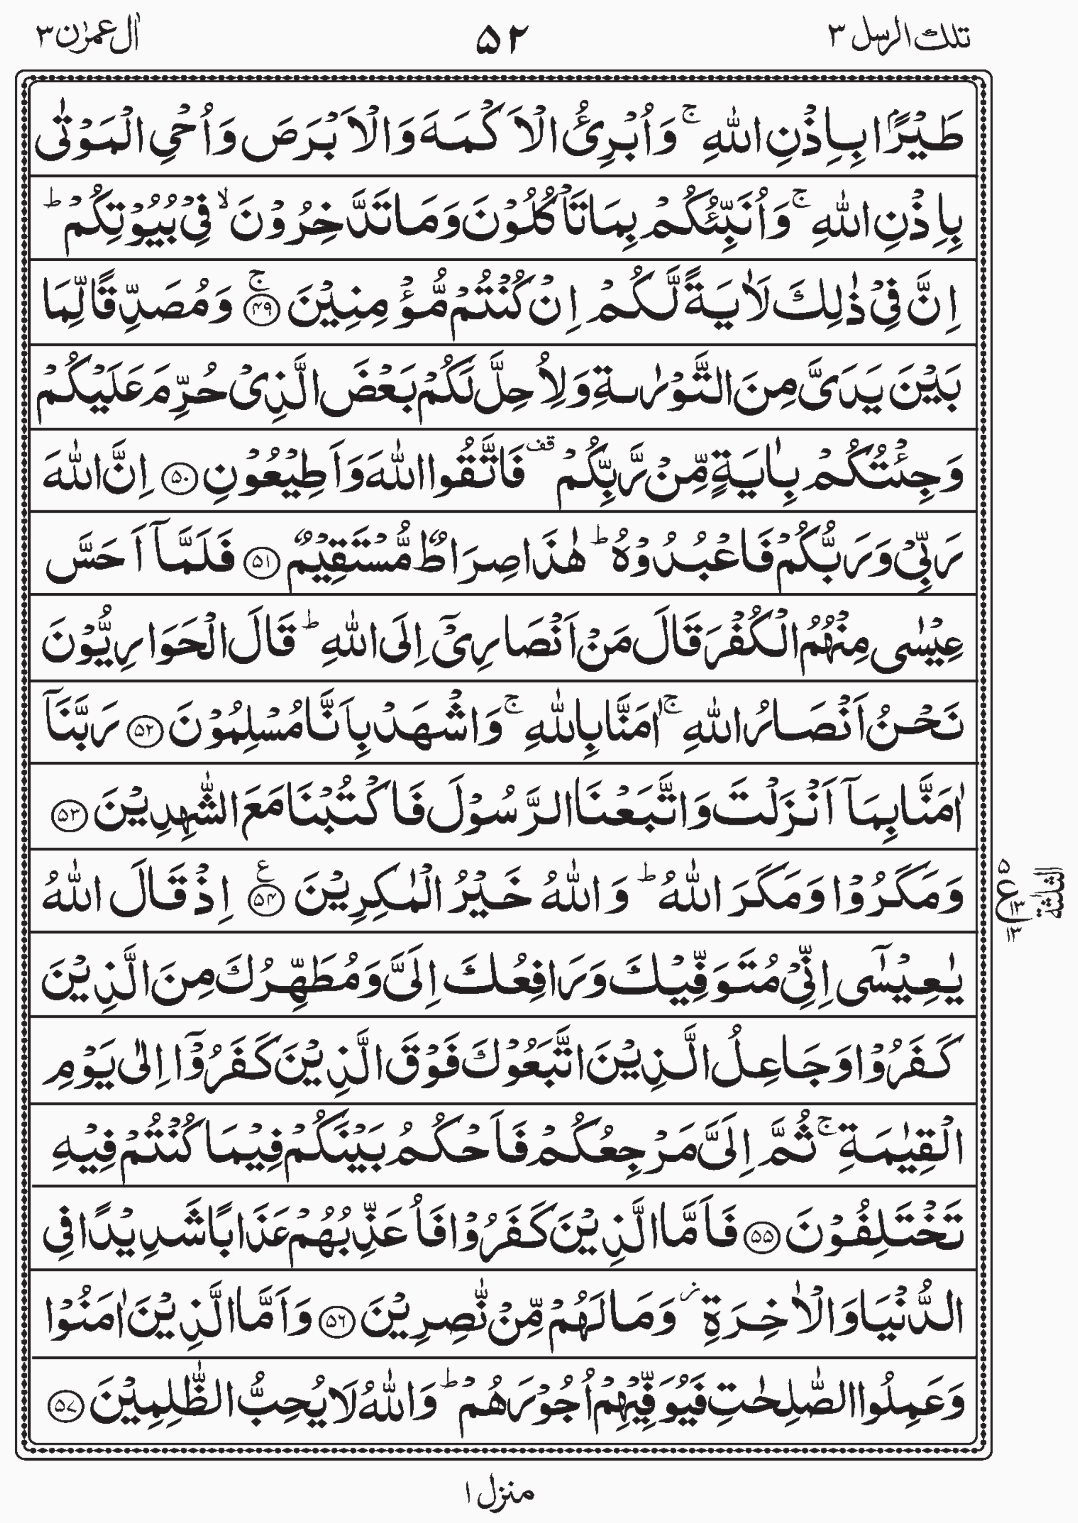 تلك الرسل ٣ ٥٢ اٰل عمرٰن ٣
طَيْرًۢا بِاِذْنِ اللّٰهِ ۚ وَاُبْرِئُ الْاَكْمَهَ وَالْاَبْرَصَ وَاُحْيِ الْمَوْتٰى
بِاِذْنِ اللّٰهِ ۚ وَاُنَبِّئُكُمْ بِمَا تَاْكُلُوْنَ وَمَا تَدَّخِرُوْنَ ۙ فِيْ بُيُوْتِكُمْ ؕ
اِنَّ فِيْ ذٰلِكَ لَاٰيَةً لَّكُمْ اِنْ كُنْتُمْ مُّؤْمِنِيْنَ ۚ ﴿۴۹﴾ وَمُصَدِّقًا لِّمَا
بَيْنَ يَدَيَّ مِنَ التَّوْرٰىةِ وَلِاُحِلَّ لَكُمْ بَعْضَ الَّذِيْ حُرِّمَ عَلَيْكُمْ
وَجِئْتُكُمْ بِاٰيَةٍ مِّنْ رَّبِّكُمْ قف فَاتَّقُوا اللّٰهَ وَاَطِيْعُوْنِ ﴿۵۰﴾ اِنَّ اللّٰهَ
رَبِّيْ وَرَبُّكُمْ فَاعْبُدُوْهُ ؕ هٰذَا صِرَاطٌ مُّسْتَقِيْمٌ ﴿۵۱﴾ فَلَمَّاۤ اَحَسَّ
عِيْسٰى مِنْهُمُ الْكُفْرَ قَالَ مَنْ اَنْصَارِيْۤ اِلَى اللّٰهِ ؕ قَالَ الْحَوَارِيُّوْنَ
نَحْنُ اَنْصَارُ اللّٰهِ ۚ اٰمَنَّا بِاللّٰهِ ۚ وَاشْهَدْ بِاَنَّا مُسْلِمُوْنَ ﴿۵۲﴾ رَبَّنَاۤ
اٰمَنَّا بِمَاۤ اَنْزَلْتَ وَاتَّبَعْنَا الرَّسُوْلَ فَاكْتُبْنَا مَعَ الشّٰهِدِيْنَ ﴿۵۳﴾
وَمَكَرُوْا وَمَكَرَ اللّٰهُ ؕ وَاللّٰهُ خَيْرُ الْمٰكِرِيْنَ ﴿۵۴﴾ ع اِذْ قَالَ اللّٰهُ
الثلثة ٥ ع ١٣ ١٣
يٰعِيْسٰۤى اِنِّيْ مُتَوَفِّيْكَ وَرَافِعُكَ اِلَيَّ وَمُطَهِّرُكَ مِنَ الَّذِيْنَ
كَفَرُوْا وَجَاعِلُ الَّذِيْنَ اتَّبَعُوْكَ فَوْقَ الَّذِيْنَ كَفَرُوْۤا اِلٰى يَوْمِ
الْقِيٰمَةِ ۚ ثُمَّ اِلَيَّ مَرْجِعُكُمْ فَاَحْكُمُ بَيْنَكُمْ فِيْمَا كُنْتُمْ فِيْهِ
تَخْتَلِفُوْنَ ﴿۵۵﴾ فَاَمَّا الَّذِيْنَ كَفَرُوْا فَاُعَذِّبُهُمْ عَذَابًا شَدِيْدًا فِي
الدُّنْيَا وَالْاٰخِرَةِ ز وَمَا لَهُمْ مِّنْ نّٰصِرِيْنَ ﴿۵۶﴾ وَاَمَّا الَّذِيْنَ اٰمَنُوْا
وَعَمِلُوا الصّٰلِحٰتِ فَيُوَفِّيْهِمْ اُجُوْرَهُمْ ؕ وَاللّٰهُ لَا يُحِبُّ الظّٰلِمِيْنَ ﴿۵۷﴾
منزل ١